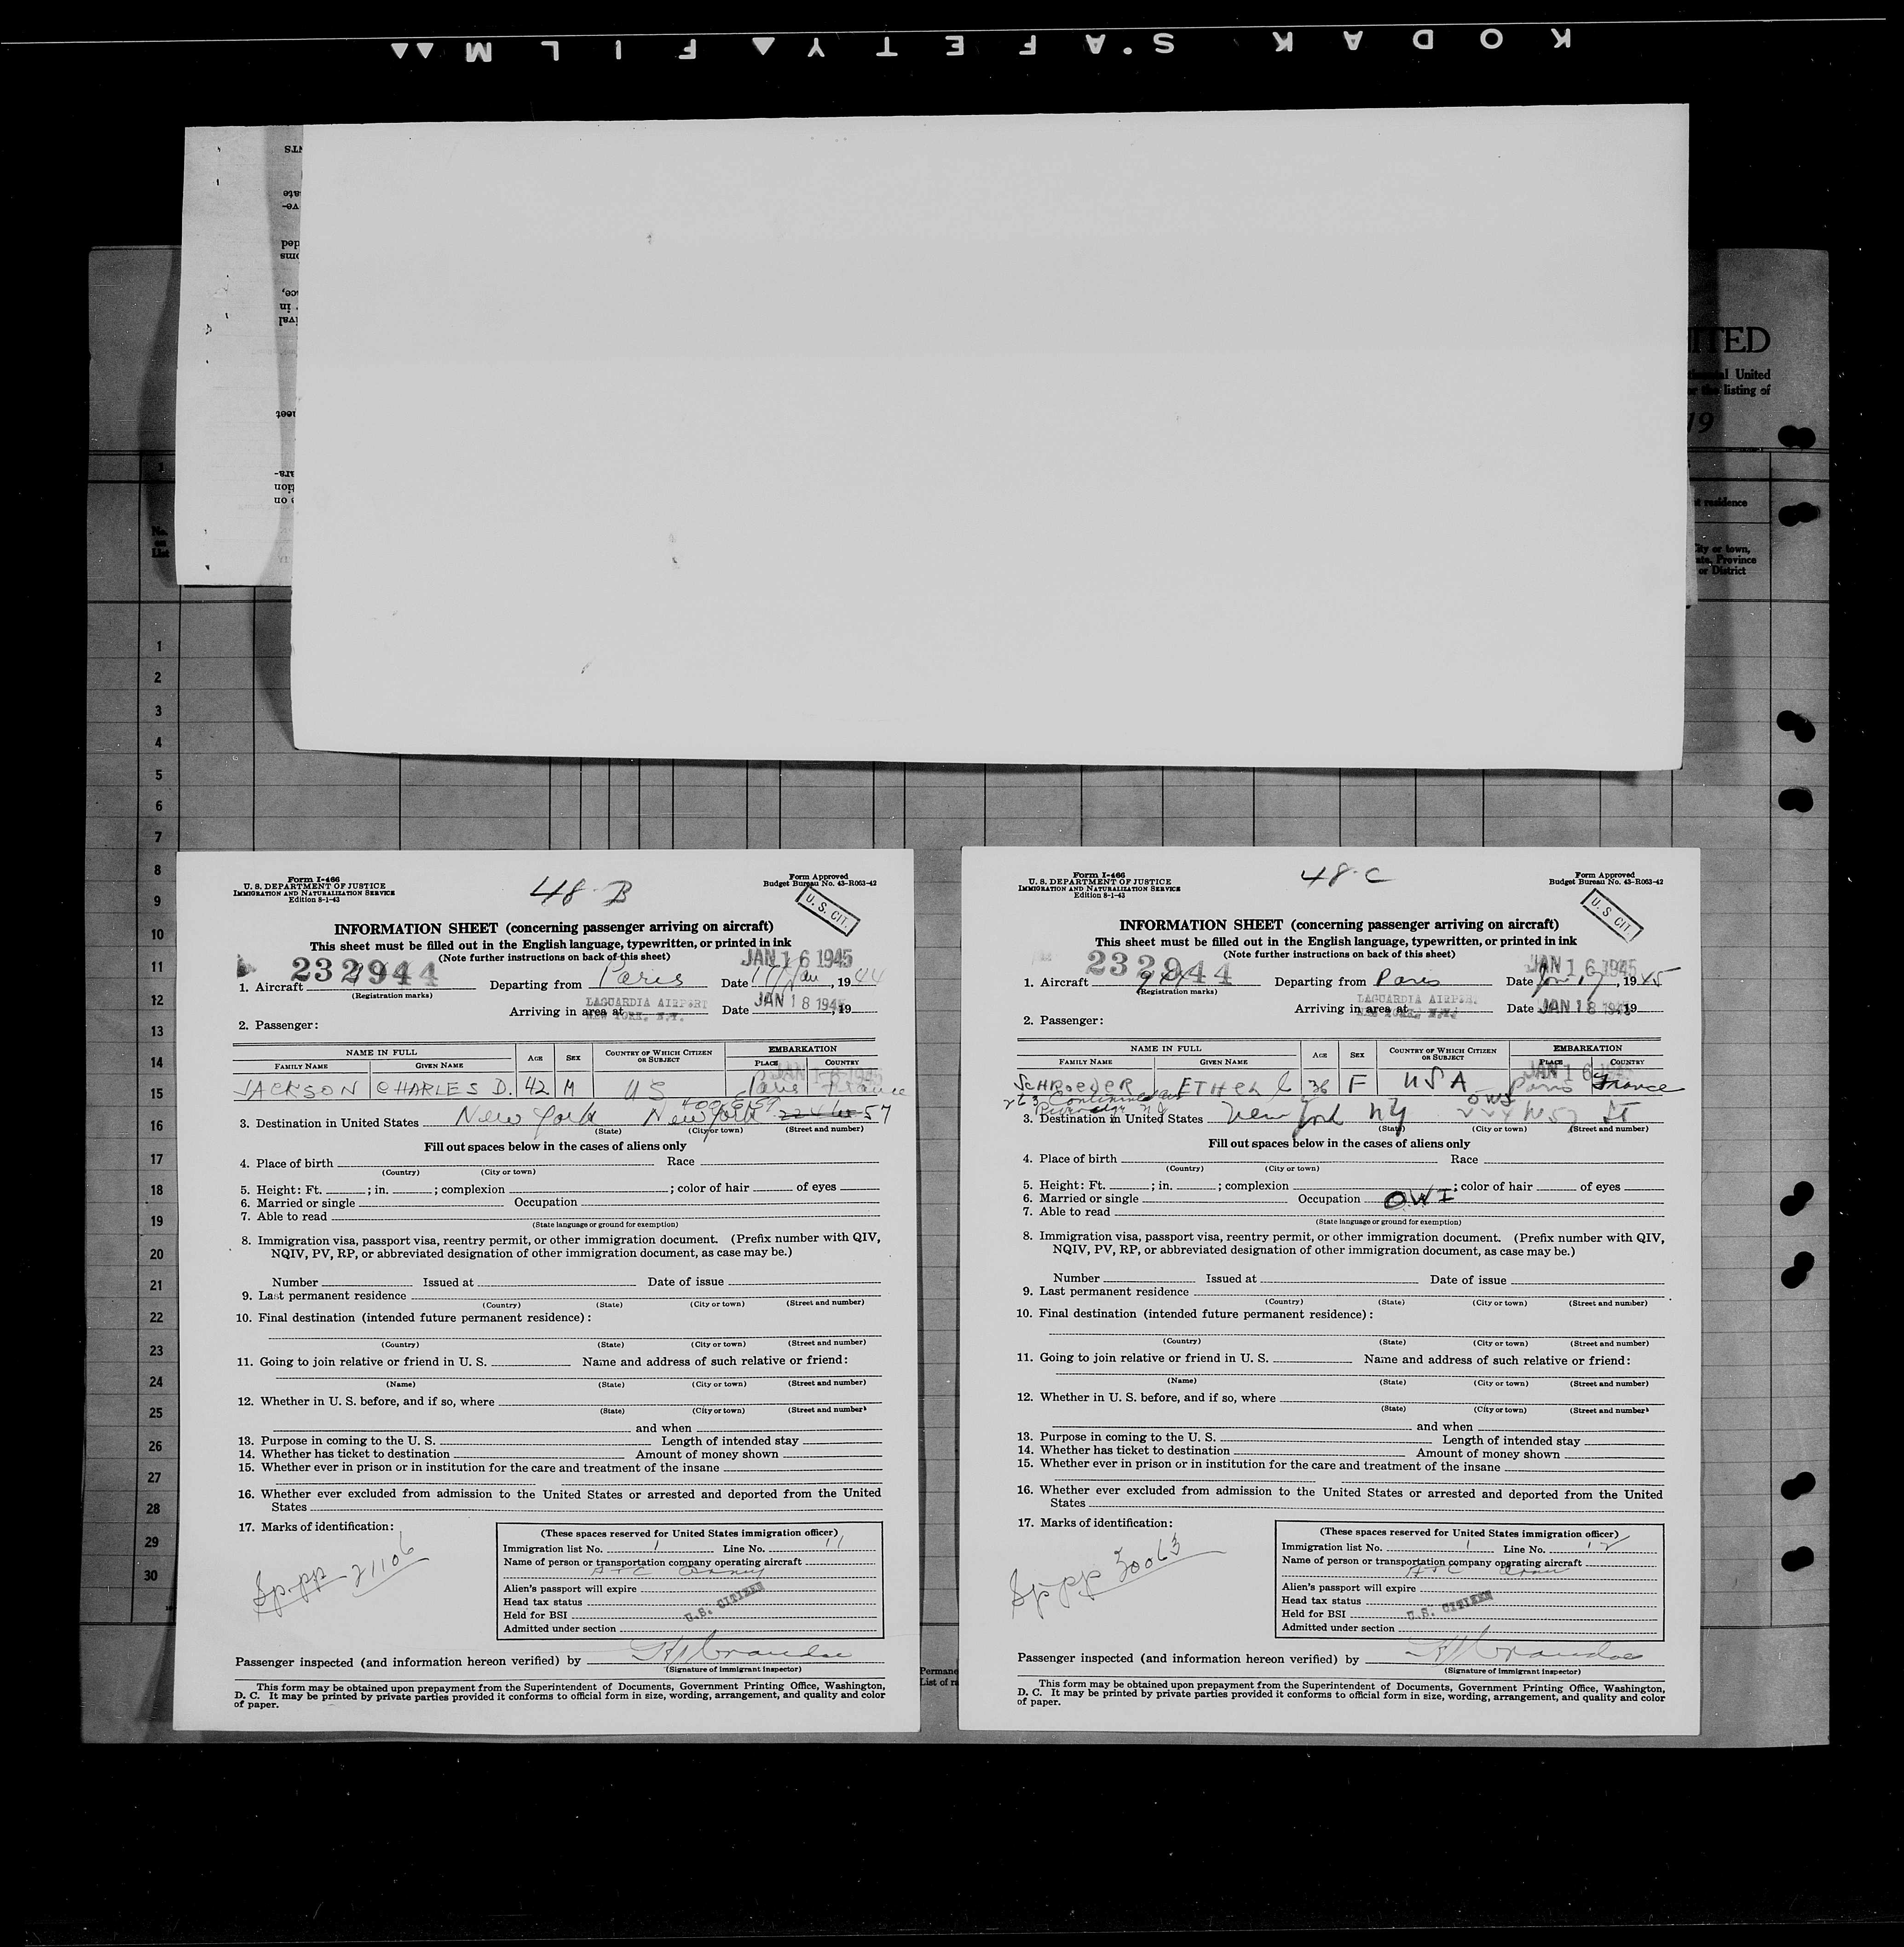 KODAK SAFETY FILM
ITED
l United
the listing of
19
residence
City or town,
Province
or District
No.
on
List
1
2
3
4
5
6
7
8
9
10
11
12
13
14
15
16
17
18
19
20
21
22
23
24
25
26
27
28
29
30
Form I-466
U. S. DEPARTMENT OF JUSTICE
IMMIGRATION AND NATURALIZATION SERVICE
Edition 8-1-43
48-B
Form Approved
Budget Bureau No. 43-R063-42
U. S. CIT.
INFORMATION SHEET (concerning passenger arriving on aircraft)
This sheet must be filled out in the English language, typewritten, or printed in ink
(Note further instructions on back of this sheet)
JAN 16 1945
232944
1. Aircraft Departing from Paris Date 17 Jan, 1944
(Registration marks)
Arriving in area at LAGUARDIA AIRPORT NEW YORK, N.Y. Date JAN 18 1945, 19
2. Passenger:
NAME IN FULL AGE SEX COUNTRY OF WHICH CITIZEN OR SUBJECT EMBARKATION
FAMILY NAME GIVEN NAME PLACE COUNTRY
JACKSON CHARLES D. 42 M US Paris France
400 E 59
3. Destination in United States New York New York 224 W 57
(State) (City or town) (Street and number)
Fill out spaces below in the cases of aliens only
4. Place of birth Race
(Country) (City or town)
5. Height: Ft. ; in. ; complexion ; color of hair of eyes
6. Married or single Occupation
7. Able to read
(State language or ground for exemption)
8. Immigration visa, passport visa, reentry permit, or other immigration document. (Prefix number with QIV,
NQIV, PV, RP, or abbreviated designation of other immigration document, as case may be.)
Number Issued at Date of issue
9. Last permanent residence
(Country) (State) (City or town) (Street and number)
10. Final destination (intended future permanent residence):
(Country) (State) (City or town) (Street and number)
11. Going to join relative or friend in U. S. Name and address of such relative or friend:
(Name) (State) (City or town) (Street and number)
12. Whether in U. S. before, and if so, where
(State) (City or town) (Street and number)
and when
13. Purpose in coming to the U. S. Length of intended stay
14. Whether has ticket to destination Amount of money shown
15. Whether ever in prison or in institution for the care and treatment of the insane
16. Whether ever excluded from admission to the United States or arrested and deported from the United
States
17. Marks of identification:
Sp pp 21106
(These spaces reserved for United States immigration officer)
Immigration list No. 1 Line No. 11
Name of person or transportation company operating aircraft
ATC
Alien's passport will expire
Head tax status
Held for BSI U.S. CITIZEN
Admitted under section
Passenger inspected (and information hereon verified) by
(Signature of immigrant inspector)
This form may be obtained upon prepayment from the Superintendent of Documents, Government Printing Office, Washington,
D. C. It may be printed by private parties provided it conforms to official form in size, wording, arrangement, and quality and color
of paper.
Form I-466
U. S. DEPARTMENT OF JUSTICE
IMMIGRATION AND NATURALIZATION SERVICE
Edition 8-1-43
48-C
Form Approved
Budget Bureau No. 43-R063-42
U. S. CIT.
INFORMATION SHEET (concerning passenger arriving on aircraft)
This sheet must be filled out in the English language, typewritten, or printed in ink
(Note further instructions on back of this sheet)
JAN 16 1945
232944
1. Aircraft Departing from Paris Date Jan 17, 1945
(Registration marks)
Arriving in area at LAGUARDIA AIRPORT Date JAN 18 1945, 19
2. Passenger:
NAME IN FULL AGE SEX COUNTRY OF WHICH CITIZEN OR SUBJECT EMBARKATION
FAMILY NAME GIVEN NAME PLACE COUNTRY
SCHROEDER ETHEL C 36 F USA Paris France
3. Destination in United States New York NY 224 W 57 St
(State) (City or town) (Street and number)
Fill out spaces below in the cases of aliens only
4. Place of birth Race
(Country) (City or town)
5. Height: Ft. ; in. ; complexion ; color of hair of eyes
6. Married or single Occupation OWI
7. Able to read
(State language or ground for exemption)
8. Immigration visa, passport visa, reentry permit, or other immigration document. (Prefix number with QIV,
NQIV, PV, RP, or abbreviated designation of other immigration document, as case may be.)
Number Issued at Date of issue
9. Last permanent residence
(Country) (State) (City or town) (Street and number)
10. Final destination (intended future permanent residence):
(Country) (State) (City or town) (Street and number)
11. Going to join relative or friend in U. S. Name and address of such relative or friend:
(Name) (State) (City or town) (Street and number)
12. Whether in U. S. before, and if so, where
(State) (City or town) (Street and number)
and when
13. Purpose in coming to the U. S. Length of intended stay
14. Whether has ticket to destination Amount of money shown
15. Whether ever in prison or in institution for the care and treatment of the insane
16. Whether ever excluded from admission to the United States or arrested and deported from the United
States
17. Marks of identification:
Sp pp 30063
(These spaces reserved for United States immigration officer)
Immigration list No. 1 Line No. 12
Name of person or transportation company operating aircraft
ATC
Alien's passport will expire
Head tax status
Held for BSI U.S. CITIZEN
Admitted under section
Passenger inspected (and information hereon verified) by
(Signature of immigrant inspector)
This form may be obtained upon prepayment from the Superintendent of Documents, Government Printing Office, Washington,
D. C. It may be printed by private parties provided it conforms to official form in size, wording, arrangement, and quality and color
of paper.